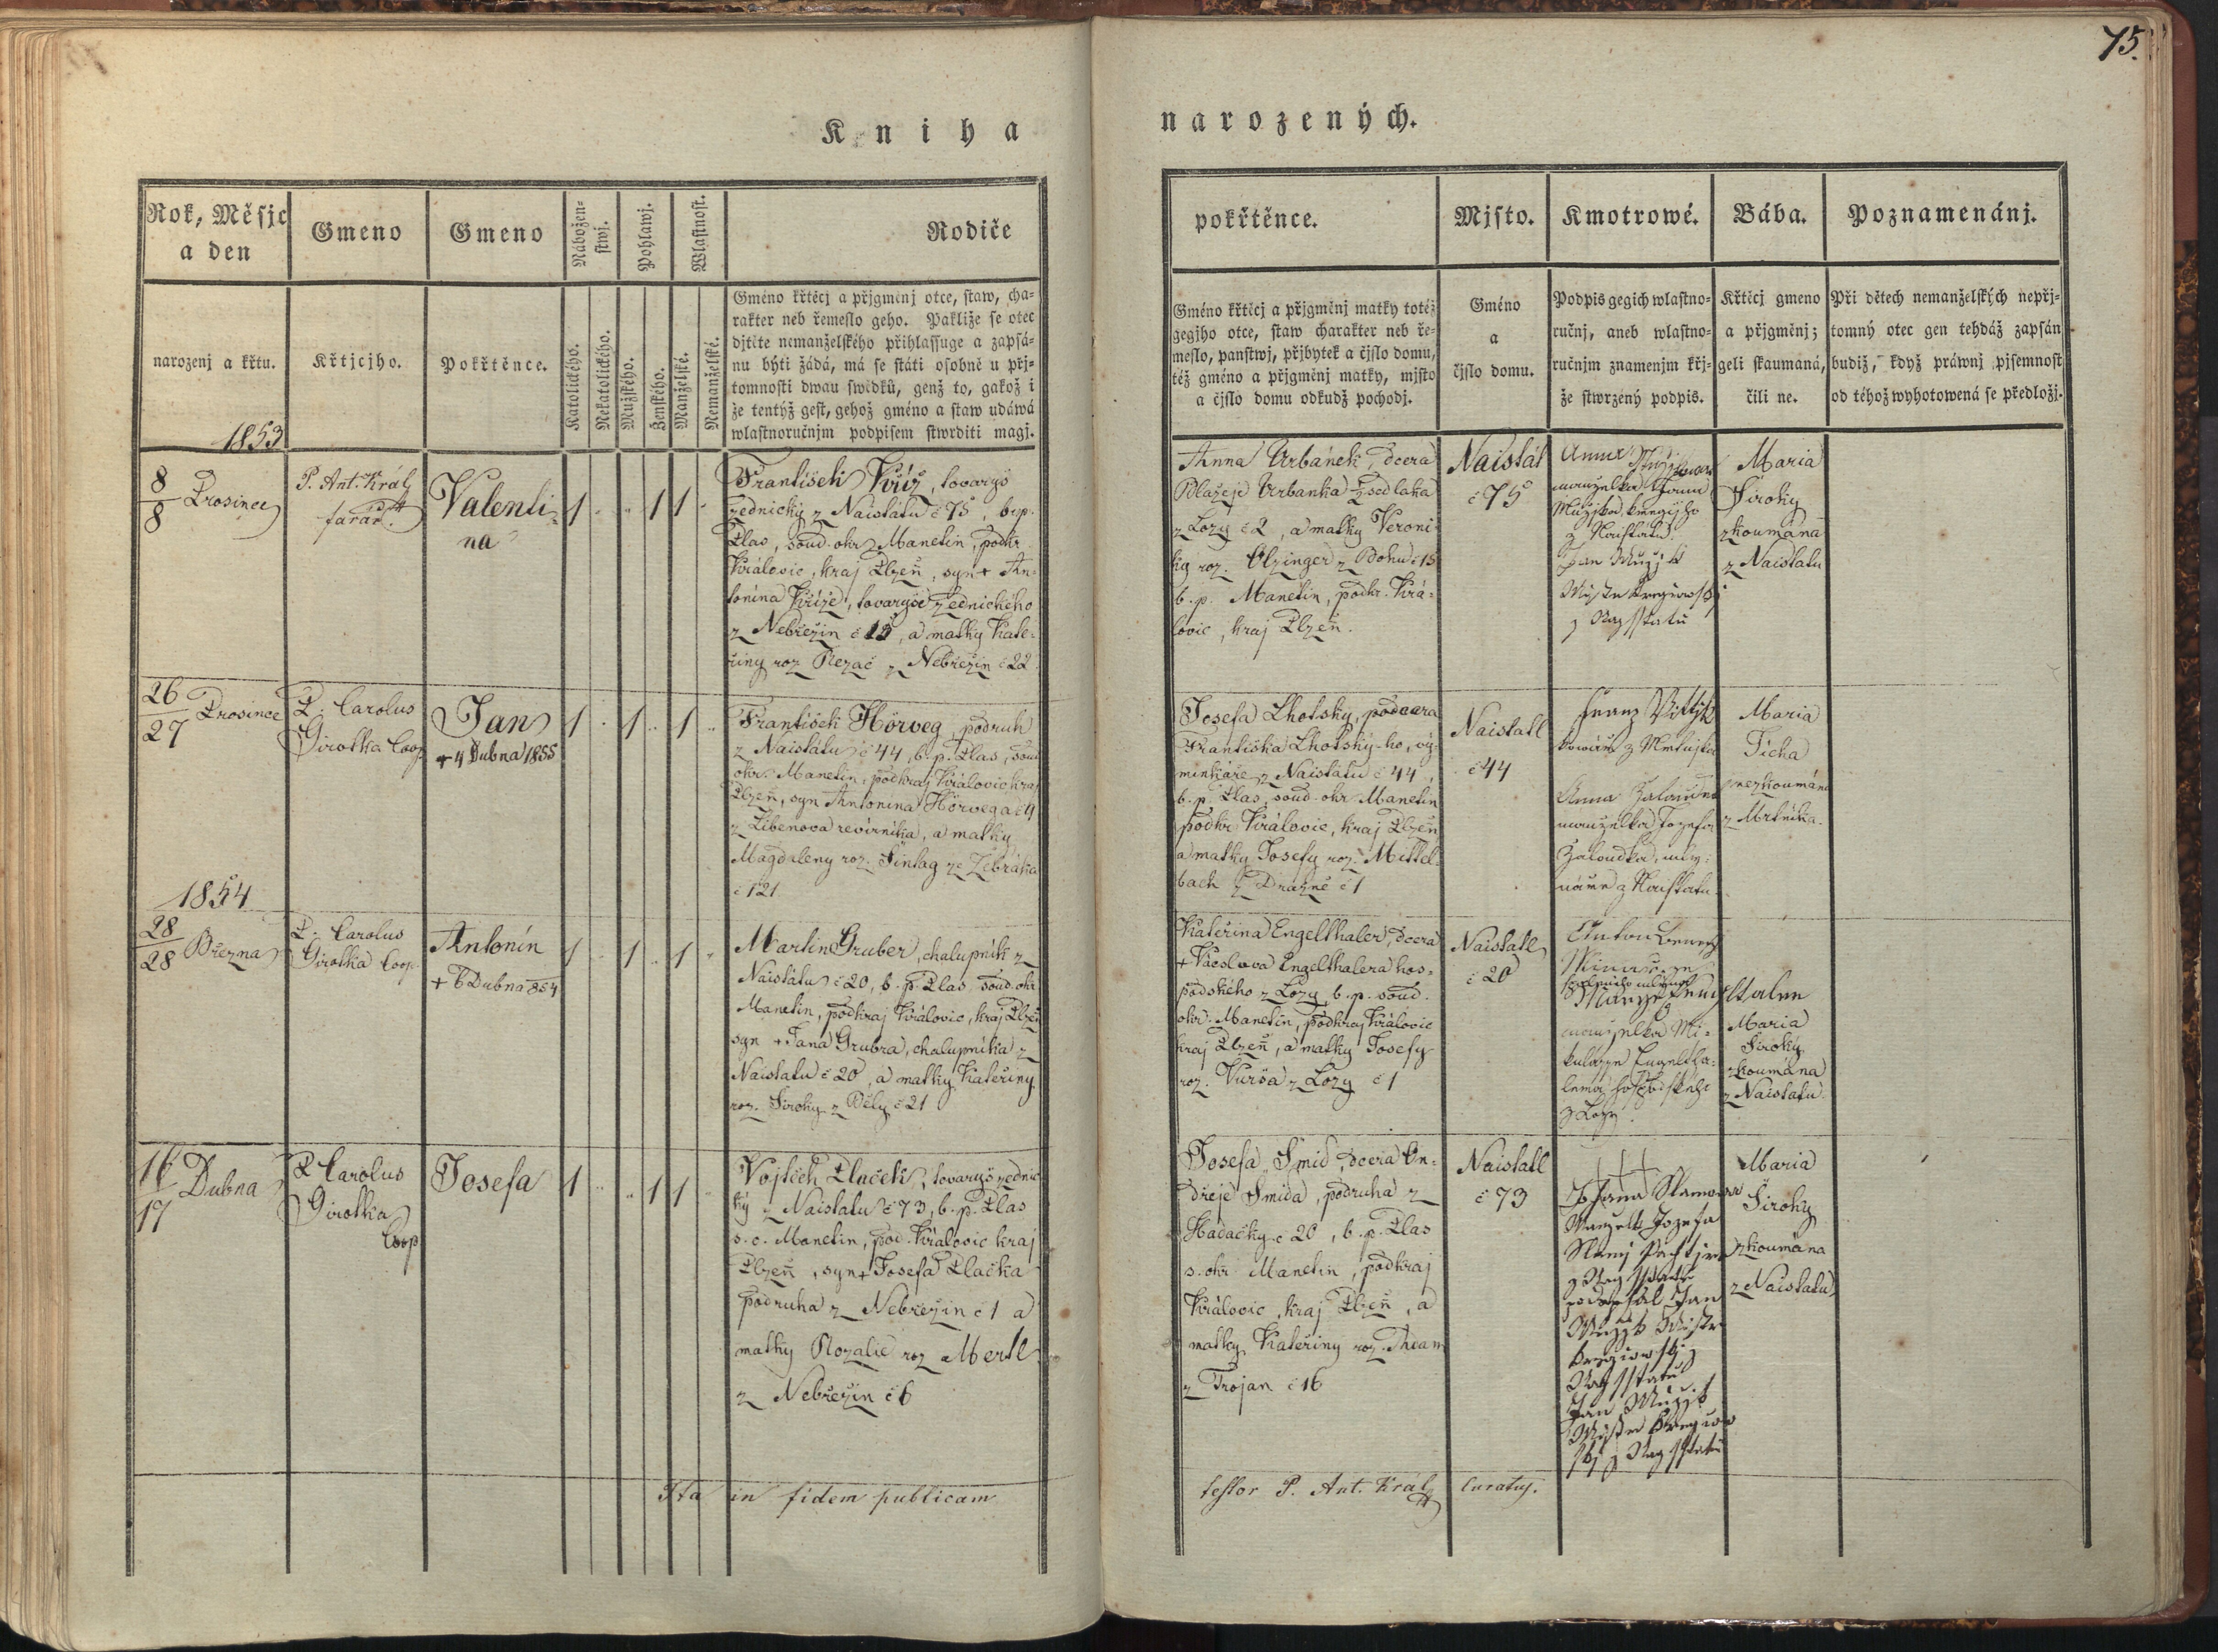 75.
Kniha
narozených.
Rok, Měsjc
a den
Gmeno
Gmeno
Nábožen-
stwj.
Pohlawj.
Wlastnost.
Rodiče
narozenj a křtu.
Křtjcjho.
Pokřtěnce.
Katolického.
Nekatolického.
Mužského.
Ženského.
Manželské.
Nemanželské.
Gméno křtěcj a přjgměnj otce, staw, cha-
rakter neb řemeslo geho. Pakliže se otec
djtěte nemanželského přihlassuge a zapsá-
nu býti žádá, má se státi osobně u přj-
tomnosti dwau swědků, genž to, gakož i
že tentýž gest, gehož gméno a staw udáwá
wlastnoručnjm podpisem stwrditi magj.
pokřtěnce.
Mjsto.
Kmotrowé.
Bába.
Poznamenánj.
Gméno křtěcj a přjgměnj matky totéž
gegjho otce, staw charakter neb ře-
meslo, panstwj, přjbytek a čjslo domu,
též gméno a přjgměnj matky, mjsto
a čjslo domu odkudž pocházj.
Gméno
a
čjslo domu.
Podpis gegich wlastno-
ručnj, aneb wlastno-
ručnjm znamenjm křj-
že stwrzený podpis.
Křtěcj gmeno
a přjgměnj;
geli skaumaná,
čili ne.
Při dětech nemanželských nepřj-
tomný otec gen tehdáž zapsán
budiž, když práwnj pjsemnost
od téhož wyhotowená se předložj.
1853
8
8 Prosince
P. Ant. Král
farář.
Valenti-
na
1 1 1
František Kříž, tovaryš
zednický z Naistatu č 75, b.p.
Plas, soud. okr. Manetin, podkr.
Královic, kraj Plzeň, syn + An-
tonína Kříže, tovaryše zednického
z Nebřezin č 15, a matky Kate-
řiny roz. Řezač z Nebřezin č 22.
Anna Urbánek, dcera
Blažeje Urbanka sedlaka
z Lozy č 2, a matky Veroni-
ky roz. Olzinger z Bohu č 15
b.p. Manetin, podkr. Krá-
lovic, kraj Plzeň.
Naistát
č 75
Anna
manželka Jana
z Naistátu.
Jan Mužjk
Maria
Široky
zkoumána
z Naistatu
26
27 Prosince
P. Carolus
Girotka Coop
Jan
+ 4 Dubna 1855
1 1 1
František Hörweg, podruh
z Naistatu č 44, b.p. Plas, soud
okr. Manetin, podkraj Královic kraj
Plzeň, syn Antonína Hörwega č 4
z Libenova revírníka, a matky
Magdaleny roz. Šintag ze Žebráka
č 121.
Josefa Lhotsky, podcera
Františka Lhotský-ho, vý-
minkáře z Naistatu č 44,
b.p. Plas, soud. okr. Manetin
podkr. Královic, kraj Plzeň
a matky Josefy roz. Mittel-
bach z Drazně č 1
Naistatl
č 44
Franz
Anna
manželka Jozefa
z Naistatu
Maria
Ticha
nezkoumána
z Mrtnika.
1854
28
28 Března
P. Carolus
Girotka Coop
Antonín
+ 6 Dubna 854
1 1 1
Martin Gruber, chalupník z
Naistatu č 20, b.p. Plas, soud. okr
Manetin, podkraj Královic, kraj Plzeň
syn + Jana Grubra, chalupníka z
Naistatu č 20, a matky Kateřiny
roz. Široky z Běly č 21
Kateřina Engelthaler, dcera
+ Václava Engelthalera hos-
podského z Lozy, b.p. soud.
okr. Manetin, podkraj Královic
kraj Plzeň, a matky Josefy
roz. Vurša z Lozy č 1
Naistatl
č 20
Anton
manželka Mi-
kulasse Engeltha-
lera hospodského
z Lozy.
Maria
Široky
zkoumána
z Naistatu.
16
17 Dubna
P. Carolus
Girotka
Coop
Josefa
1 1 1
Vojtěch Plaček, tovaryš zednic-
ký z Naistatu č 73, b.p. Plas
s. o. Manetin, pod. Královic kraj
Plzeň, syn + Josefa Plačka
podruha z Nebřezin č 1 a
matky Rozalie roz. Mertl
z Nebřezin č 6
Josefa Šmid, dcera On-
dřeje Šmida, podruha z
Hadačky č 20, b.p. Plas
s. okr. Manetin, podkraj
Královic, kraj Plzeň, a
matky Kateřiny roz. Tham
z Trojan č 16
Naistatl
č 73
+++
podepsal Jan
Mužjk Mistr
Jan Mužjk
Maria
Široky
zkoumána
z Naistatu
Ita in fidem publicam
testor P. Ant. Král Curatus.